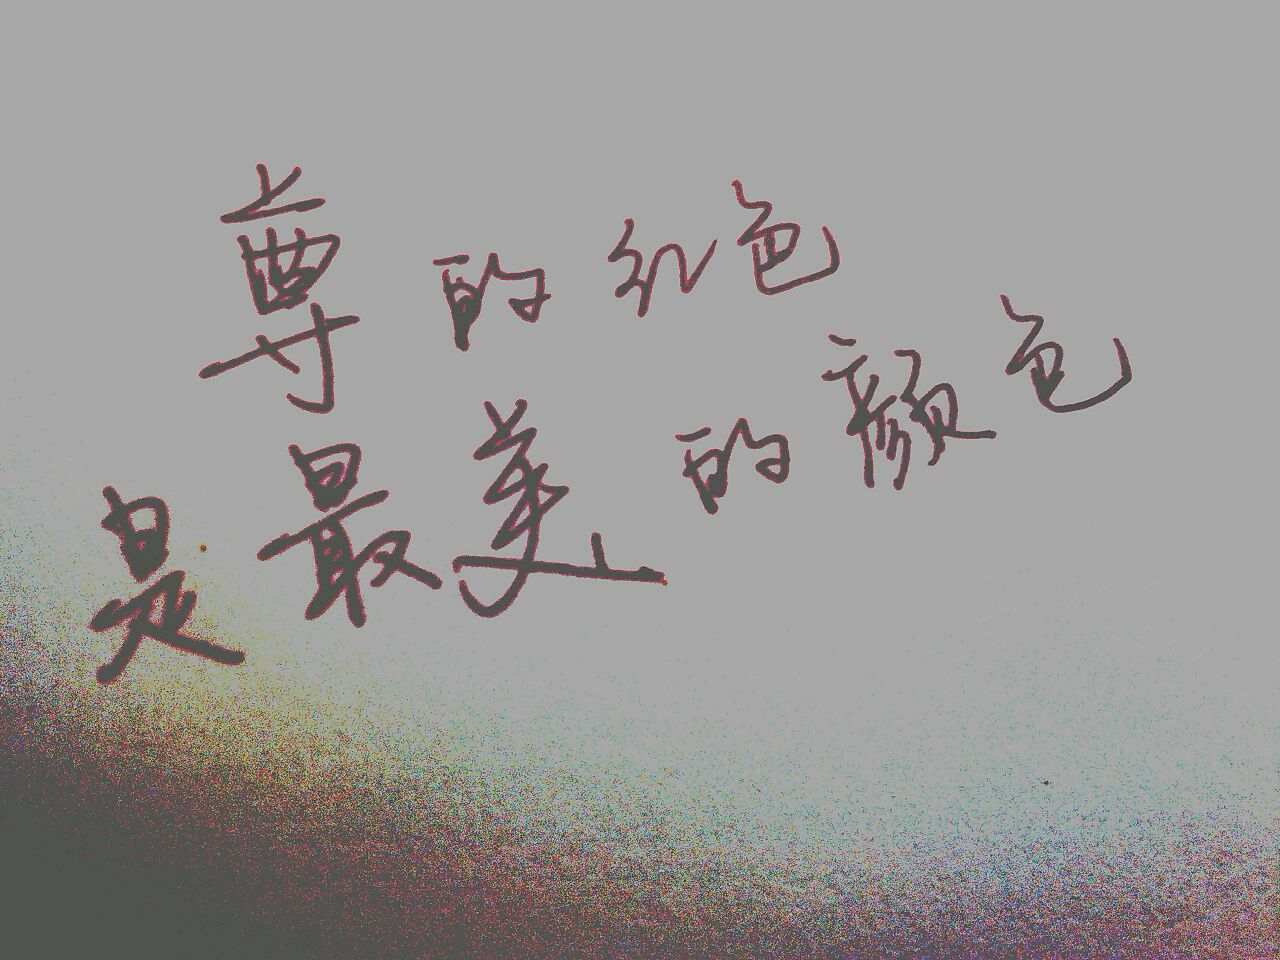 尊的红色
是最美的颜色